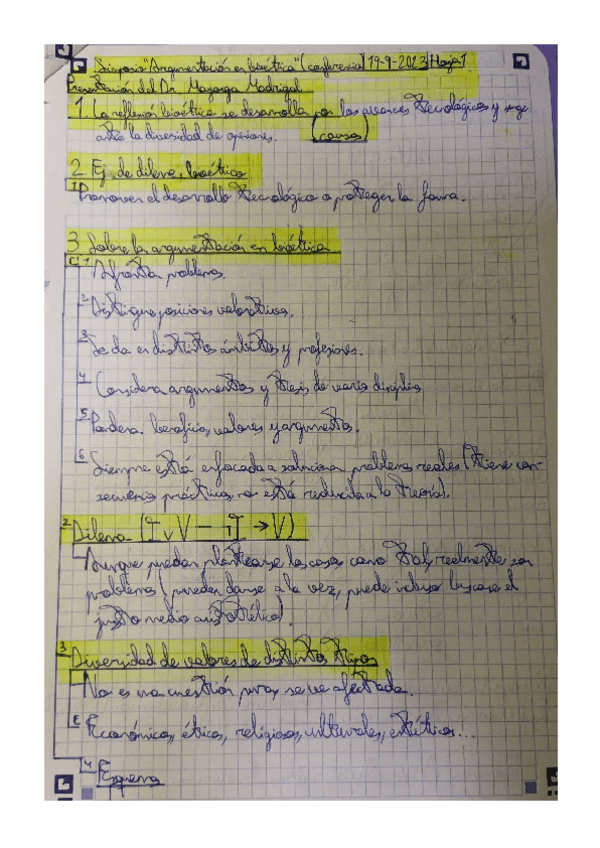 Simposio "Argumentación en bioética" (conferencia) 19-9-2023 Hoja 1
Presentación del Dr. Mayorga Madrigal
1. La reflexión bioética se desarrolla por los avances tecnológicos y surge
ante la diversidad de opiniones. (causas)
2. Ej. de dilema bioético
1 Promover el desarrollo tecnológico o proteger la fauna.
3 Sobre la argumentación en bioética
1 Afronta problemas.
2 Distingue posiciones valorativas.
3 Se da en distintos ámbitos y profesiones.
4 Considera argumentos y tesis de varias disciplinas
5 Pondera beneficios, valores y argumentos.
6 Siempre está enfocada a solucionar problemas reales (tiene con-
secuencias prácticas, no está reducida a la teoría).
2 Dilema (T v V — ¬T → V)
Aunque puedan plantearse las cosas como tal, realmente son
problemas (pueden darse a la vez, puede incluso buscarse el
justo medio aristotélico).
3 Diversidad de valores de distintos tipos
No es una cuestión pura, se ve afectada.
Económicos, éticos, religiosos, culturales, estéticos...
4 Esquema